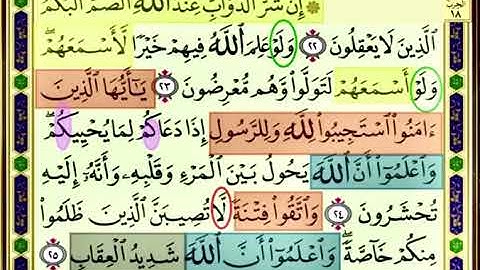 ۞ إِنَّ شَرَّ ٱلدَّوَآبِّ عِندَ ٱللَّهِ ٱلصُّمُّ ٱلۡبُكۡمُ
ٱلَّذِينَ لَا يَعۡقِلُونَ ٢٢ وَلَوۡ عَلِمَ ٱللَّهُ فِيهِمۡ خَيۡرٗا لَّأَسۡمَعَهُمۡۖ
وَلَوۡ أَسۡمَعَهُمۡ لَتَوَلَّواْ وَّهُم مُّعۡرِضُونَ ٢٣ يَٰٓأَيُّهَا ٱلَّذِينَ
ءَامَنُواْ ٱسۡتَجِيبُواْ لِلَّهِ وَلِلرَّسُولِ إِذَا دَعَاكُمۡ لِمَا يُحۡيِيكُمۡۖ
وَٱعۡلَمُوٓاْ أَنَّ ٱللَّهَ يَحُولُ بَيۡنَ ٱلۡمَرۡءِ وَقَلۡبِهِۦ وَأَنَّهُۥٓ إِلَيۡهِ
تُحۡشَرُونَ ٢٤ وَٱتَّقُواْ فِتۡنَةٗ لَّا تُصِيبَنَّ ٱلَّذِينَ ظَلَمُواْ
مِنكُمۡ خَآصَّةٗۖ وَٱعۡلَمُوٓاْ أَنَّ ٱللَّهَ شَدِيدُ ٱلۡعِقَابِ ٢٥
الحزب
١٨